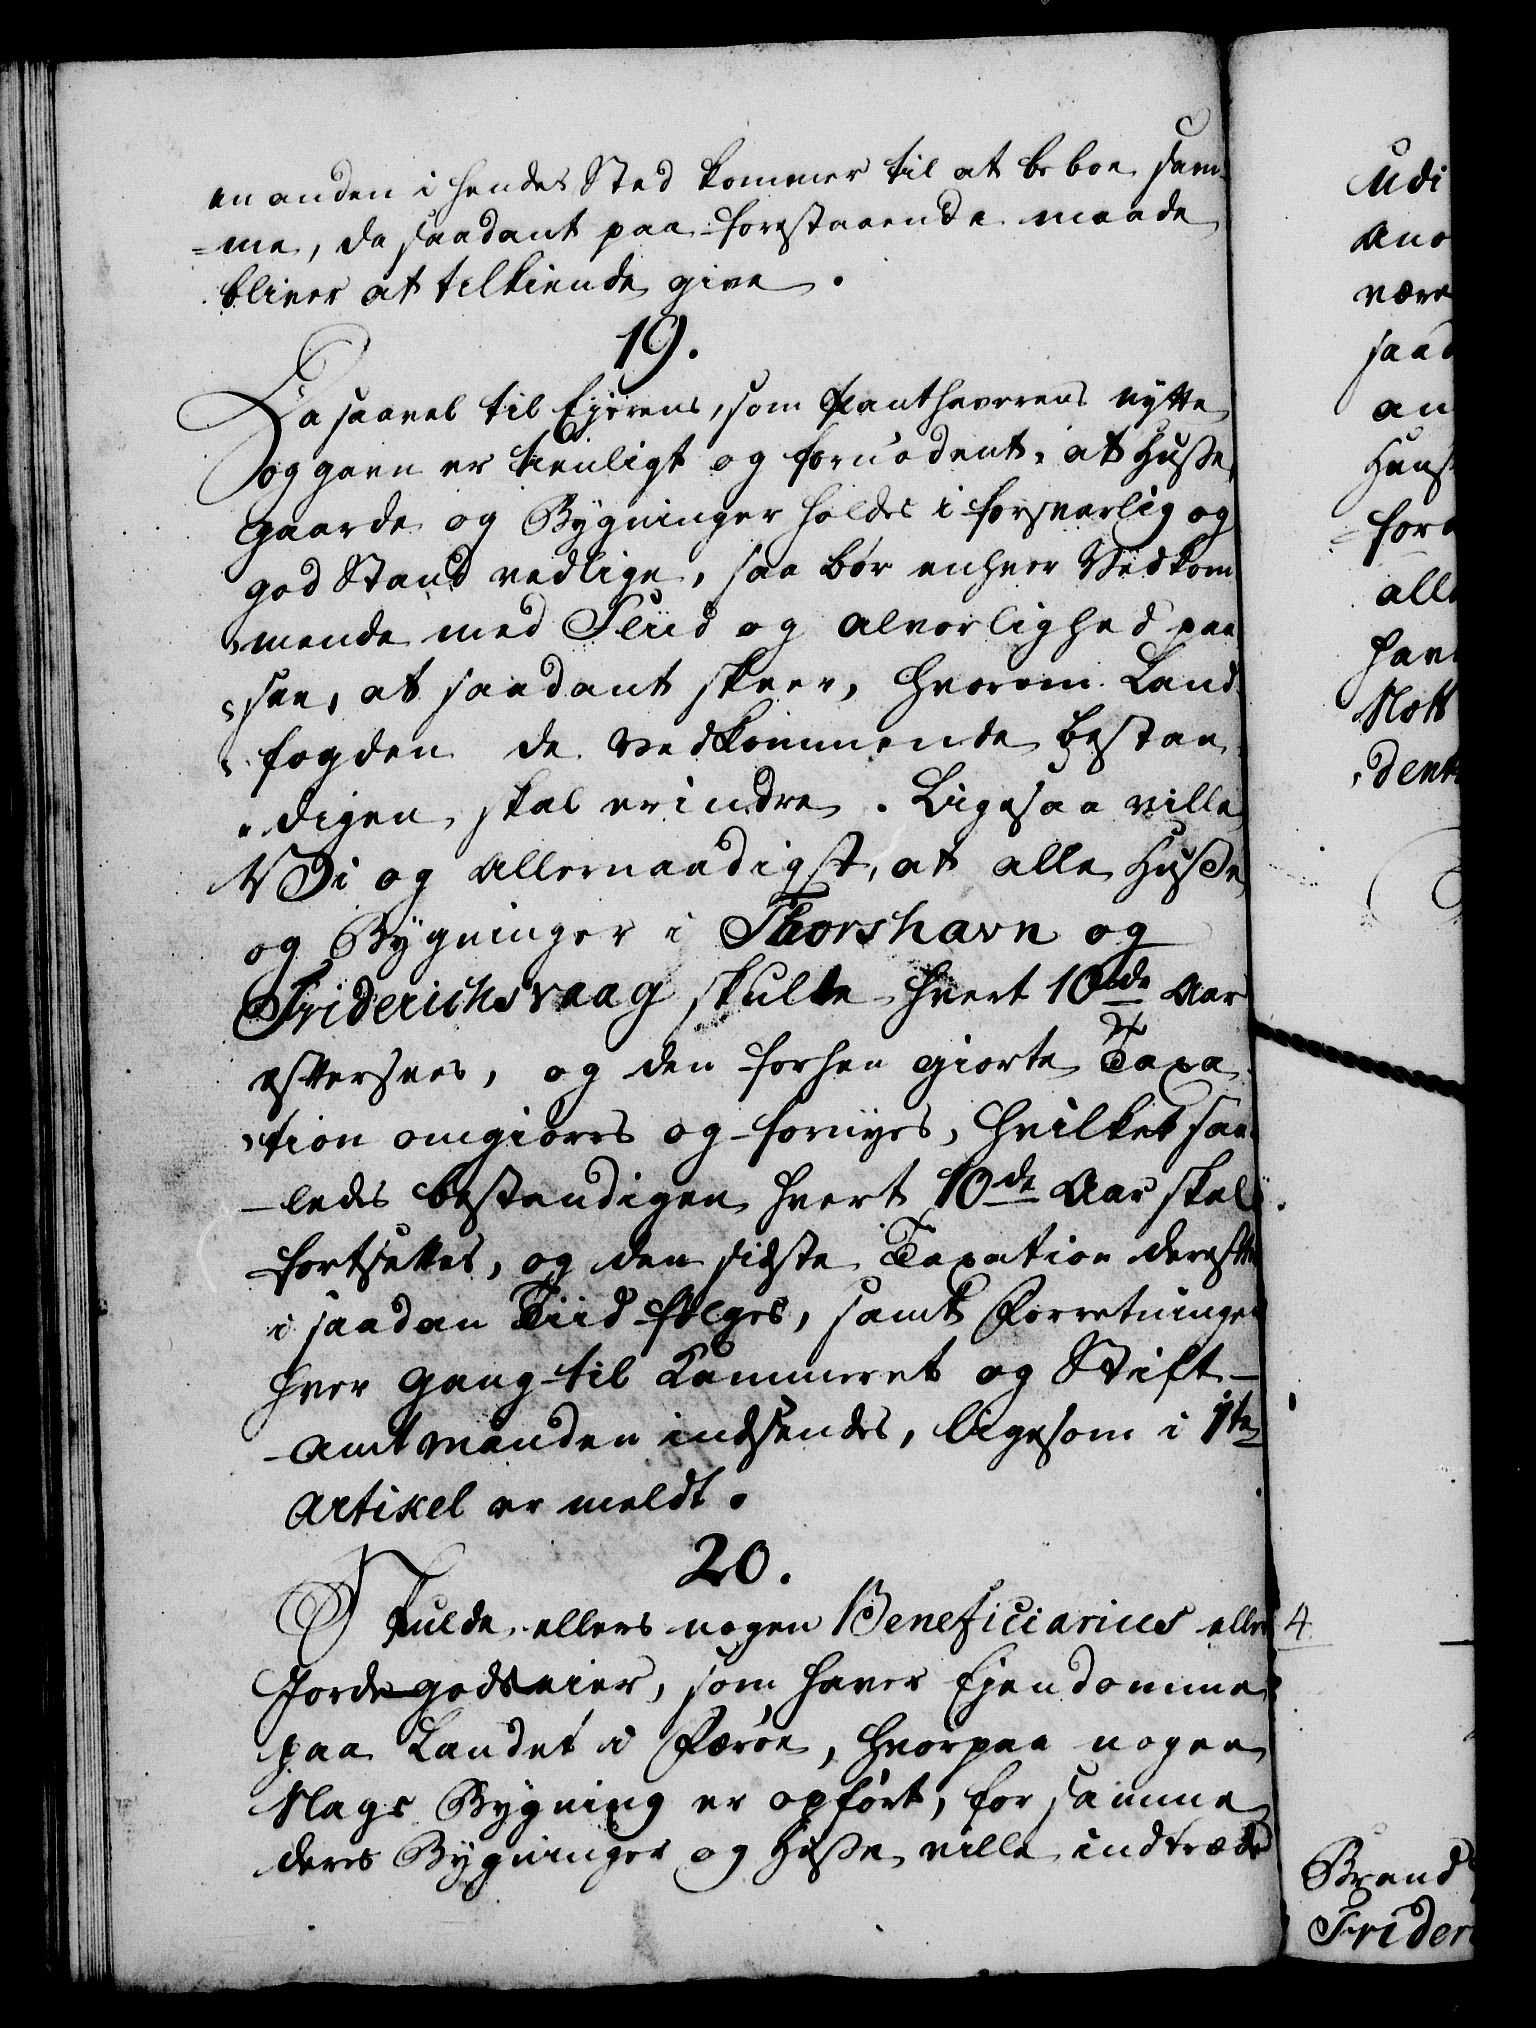 en anden i hendes Sted kommer til at beboe sam¬
=me, da saadant paa forestaaende maade
bliver at tilkiende give.
19.
Da saavel til Ejerens, som Panthaverens nytte
og gavn er tienligt og fornödent, at Huße
gaarde og Bygninger holdes i forsvarlig og
god Stand vedlige, saa bör enhver Vedkom
mende med Fliid og alvorlighed paa
see, at saadant skeer, hvorom Land
fogden de Vedkommende bestæn
digen skal erindre. Ligesaa ville
Vi og Allernaadigst, at alle Huße
og Bygninger i Thorshavn og
Friderichsvaag skulle hvert 10de Aar
eftersees, og den forhen giorte Taxa
tion omgiøres og fornyes, hvilket saa
-ledes bestandigen hvert 10de Aar skal
fortsettes, og den sidste Taxation derefter
i saadan Tiid fölges, samt Forretningen
hver gang til Kammeret og Stift-
-amtmanden indsendes, ligesom i 1te
Artikel er meldt.
20.
Skulde ellers nogen Beneficiarius eller
Jordegodseier, som haver Ejendomme
paa Landet i Færöe, hvorpaa nogen
Slags Bygning er opfört, for samme
deres Bygninger og Huße ville indtræde
Udi
være
saad
an
for
alle
4
Brand
Frider